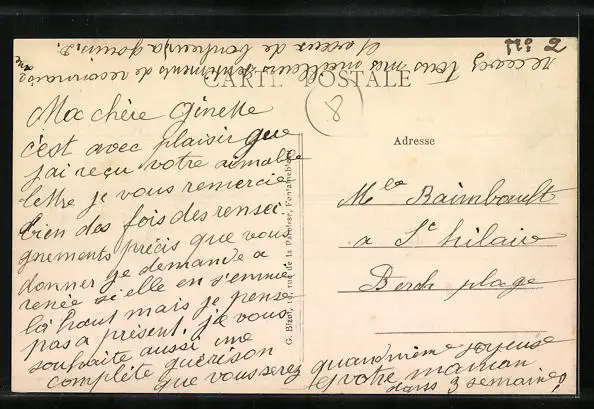 CARTE POSTALE
N° 2
8
Ma chère Ginette
c'est avec plaisir que
j'ai reçu votre aimable
lettre je vous remercie
bien des fois des rensei
gnements précis que vous
donner je demande a
renée si elle en s'ennuie
là haut mais je pense
pas a présent. je vous
souhaite aussi une
complète guérison
que vous serez quand même joyeuse
et votre maman
dans 3 semaines
recevez tous mes meilleurs sentiments de reconnaissance
G. Bizot, rue de la Paroisse, Fontainebleau
Adresse
Melle Raimboult
a St hilaire
Berck plage